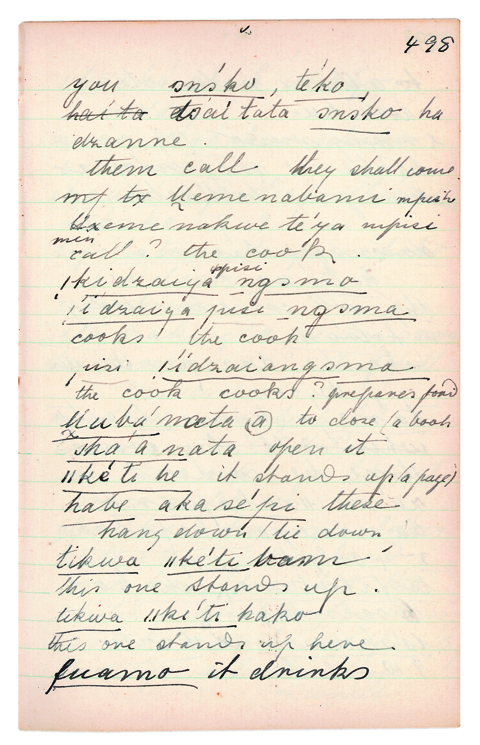 498
you snsko, téko,
hai ta tsai tata snsko ha
dzanne.
them call they shall come
nakwe té'ya mpisi
men
call? the cook.
mpisi
!kidzaiya ngsma
!iídzaiya pisi ngsma
cooks the cook
pisi !iídzaiangsma
the cook cooks? prepares food
nata a to close (a book
shá'a nata open it
llkéti he it stands up (a page)
habe akasé'pi these
hang down / lie down
tikwa llkéti ham
this one stands up.
tikwa llkéti hako
this one stands up here.
fuamo it drinks